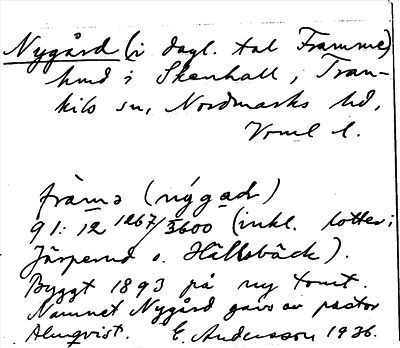 Nygård (i dagl. tal Framme)
hmd i Skenhall, Tran-
kils sn, Nordmarks hd,
Vrml l.
fràmə (nýgad)
91: 12 1267/3600 (inkl. lotter i
Järperud o. Hällsbäck).
Byggt 1893 på ny tomt.
Namnet Nygård gavs av pastor
Almqvist. E. Andersson 1936.